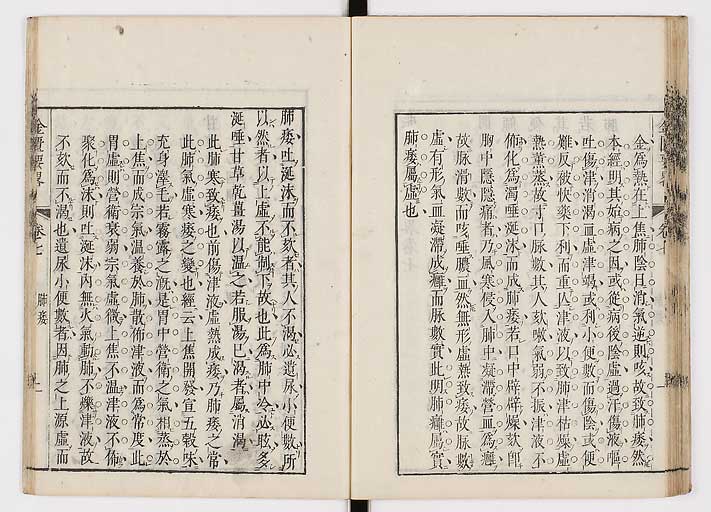 金爲熱在上焦肺陰日消氣逆則咳故致肺痿然
本經明其始病之因或從病後陰虛過汗傷液嘔
吐傷津消渴血虛津竭或利小便數而傷陰或便
難反被快藥下利而重亾津液以致肺津枯燥虛
熱薰蒸故寸口脉數其人欬嗽氣弱不振津液不
佈化爲濁唾涎沫而成肺痿若口中辟辟燥欬卽
胸中隱隱痛者乃風寒侵入肺中凝滯營血爲癰
故脉滑數而咳唾膿血然無形虛熱致痿故脉數
虛有形氣血凝滯成癰而脉數實此明肺癰屬實
肺痿屬虛也
肺痿吐涎沫而不欬者其人不渴必遺尿小便數所
以然者以上虛不能制下故也此爲肺中冷必眩多
涎唾甘草乾薑湯以温之若服湯已渴者屬消渴
此肺寒致痿也前傷津液虛熱成痿乃肺痿之常
此肺氣虛寒痿之變也經云上焦開發宣五穀味
充身澤毛若霧露之溉是胃中營衛之氣相蒸於
上焦而成宗氣温養於肺散佈津液而爲常度此
胃虛則營衛衰弱宗氣虛微上焦不温津液不佈
聚化爲沫則吐涎沫內無火氣動肺不爍津液故
不欬而不渴也遺尿小便數者因肺之上源虛而
金匱要畧
卷七
肺痿
一